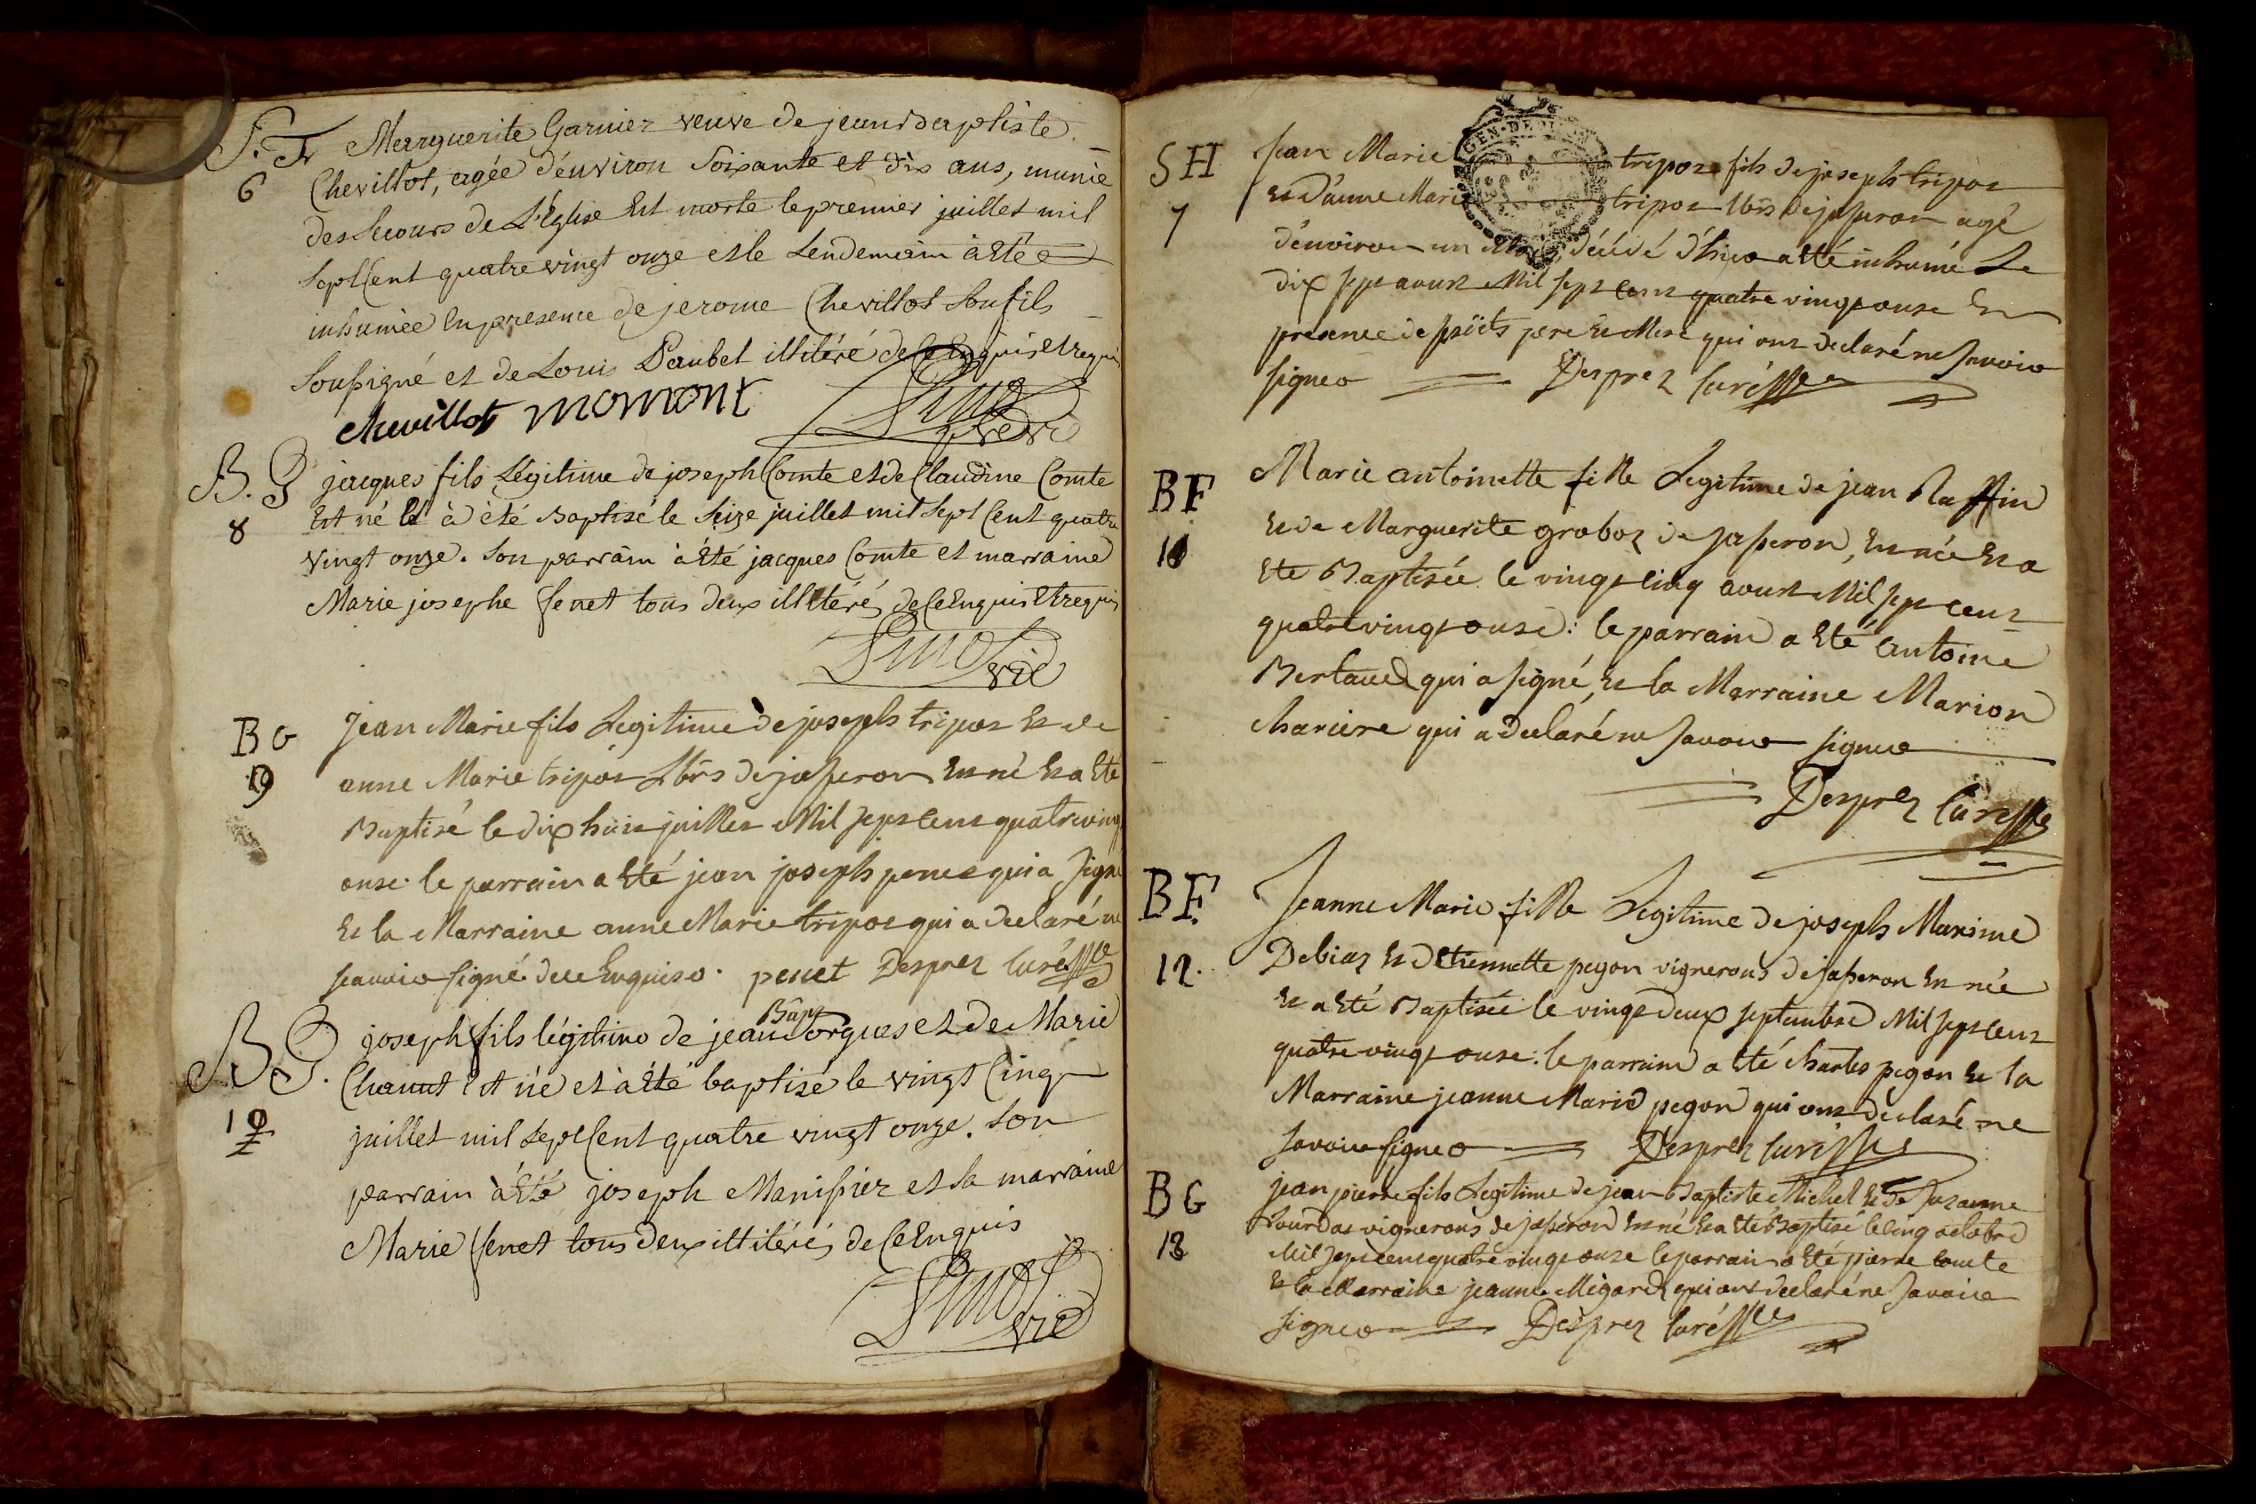 S. F. Marguerite Garnier veuve de jean baptiste
6 Chevillot, agée d'environ soixante et dix ans, munie
des secours de L'Eglise Est morte le premier juillet mil
sept Cent quatre vingt onze et le Lendemain à Eté
inhumée En presence de jerome Chevillot son fils
soussigné et de Louis Paubel illitéré de ce Enquis et requis
chevillot momont
B. G jacques fils Légitime de joseph Comte et de Claudine Comte
8 Est né et à été Baptisé le seize juillet mil sept Cent quatre
vingt onze. son parrain à Eté jacques Comte et marraine
Marie josephe fenet tous deux illitérés de Ce Enquis Et requis
vic
BG Jean Marie fils Legitime de joseph tripoz Et de
9 anne Marie tripoz Lbrs de jasseron Est né Et a Eté
Baptisé le dix huit juillet Mil sept cent quatre vingt
onze. le parrain a Eté jean joseph penet qui a signé
Et la Marraine anne Marie tripoz qui a declaré ne
scavoir signé de ce Enquise. penet Desprez Curé
Bap
B G. joseph fils légitime de jean Sorgues et de Marie
Chanut Est né et à Eté baptisé le vingt Cinq
10 juillet mil sept Cent quatre vingt onze. son
parrain à Eté joseph Manissier et sa marraine
Marie fenet tous deux illitérés de Ce Enquis
vic
SH Jean Marie tripoz fils de joseph tripoz
7 Et d'anne Marie tripoz Lbrs de jasseron agé
d'environ un Mois, décédé d'hier a Eté inhumé Le
dix sept aoust Mil sept cent quatre vingt onze En
presence de sesdits pere Et Mere qui ont declaré ne scavoir
signer Desprez Curé
BF Marie antoinette fille Legitime de jean Raffin
11 Et de Marguerite groboz de jasseron, Est née Et a
Eté Baptisée le vingt cinq aoust Mil sept cent
quatre vingt onze: le parrain a Eté antoine
Bertaud qui a signé, Et la Marraine Marion
chariere qui a declaré ne scavoir signer
Desprez Curé
BF. Jeanne Marie fille Legitime de joseph Maxime
12. Debiaz Et d'Etiennette pegon vignerons de jasseron Est née
Et a Eté Baptisée le vingt deux septembre Mil sept cent
quatre vingt onze. le parrain a Eté charles pegon Et la
Marraine jeanne Marie pegon qui ont declaré ne
scavoir signer Desprez Curé
BG jean pierre fils Legitime de jean Baptiste Michel Et de suzanne
13 Bourdas vignerons de jasseron Est né Et a Eté Baptisé le cinq octobre
Mil sept cent quatre vingt onze le parrain a Eté pierre comte
Et la Marraine jeanne Mégard qui ont declaré ne scavoir
signer Desprez Curé